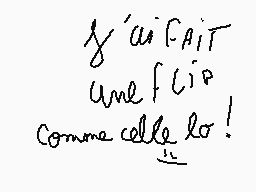 J'ai FAiT
une flip
comme celle la !